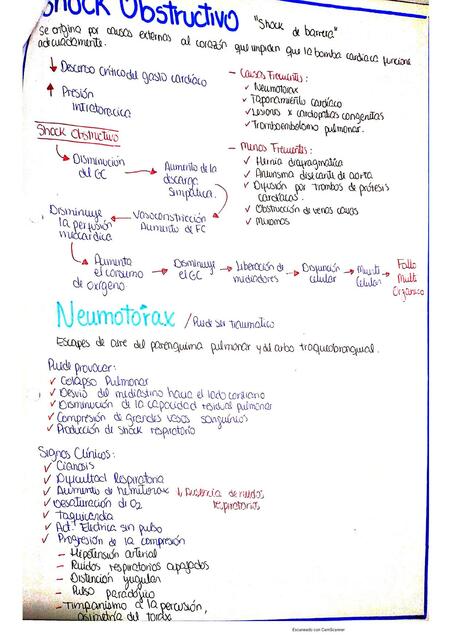 Shock Obstructivo "Shock de barrera"
Se origina por causas externas al corazón que impiden que la bomba cardiaca funcione
adecuadamente.
↓ Descenso crítico del gasto cardíaco
↑ Presión
intratoracica
- Causas Frecuentes:
✓ Neumotorax
✓ Taponamiento cardíaco
✓ Lesiones x cardiopatias congenitas
✓ Tromboembolismo pulmonar.
Shock Obstructivo
→ Disminución
del GC
→ Aumento de la
descarga
simpatica.
- Menos Frecuentes:
✓ Hernia diafragmatica
✓ Aneurisma disecante de aorta
✓ Difusión por trombos de prótesis
cardiacas.
✓ Obstrucción de venas cavas
✓ Mixomas
Vasoconstricción
Aumento de FC
Disminuye
la perfusión
miocardica
→ Aumenta
el consumo
de oxigeno
→ Disminuye
el GC
→ Liberación de
mediadores
→ Disfunción
celular
→ Muerte
celular
→ Fallo
Multi
Organico
Neumotórax / Puede ser traumatico
Escapes de aire del parenquima pulmonar y del arbol traqueobronquial.
Puede provocar:
✓ Colapso Pulmonar
✓ Desvio del mediastino hacia el lado contrario
✓ Disminución de la capacidad residual pulmonar
✓ Compresión de grandes vasos sanguineos
✓ Producción de shock respiratorio
Signos Clínicos:
✓ Cianosis
✓ Dificultad Respiratoria
✓ Aumento de hemitorax ↓ Ausencia de ruidos
respiratorios
✓ Desaturación de O2
✓ Taquicardia
✓ Act. Electrica sin pulso
✓ Progresión de la compresión
- Hipotensión arterial
- Ruidos respiratorios apagados
- Distención yugular
- Pulso paradójico
- Timpanismo a la percusión,
asimetria del torax
Escaneado con CamScanner